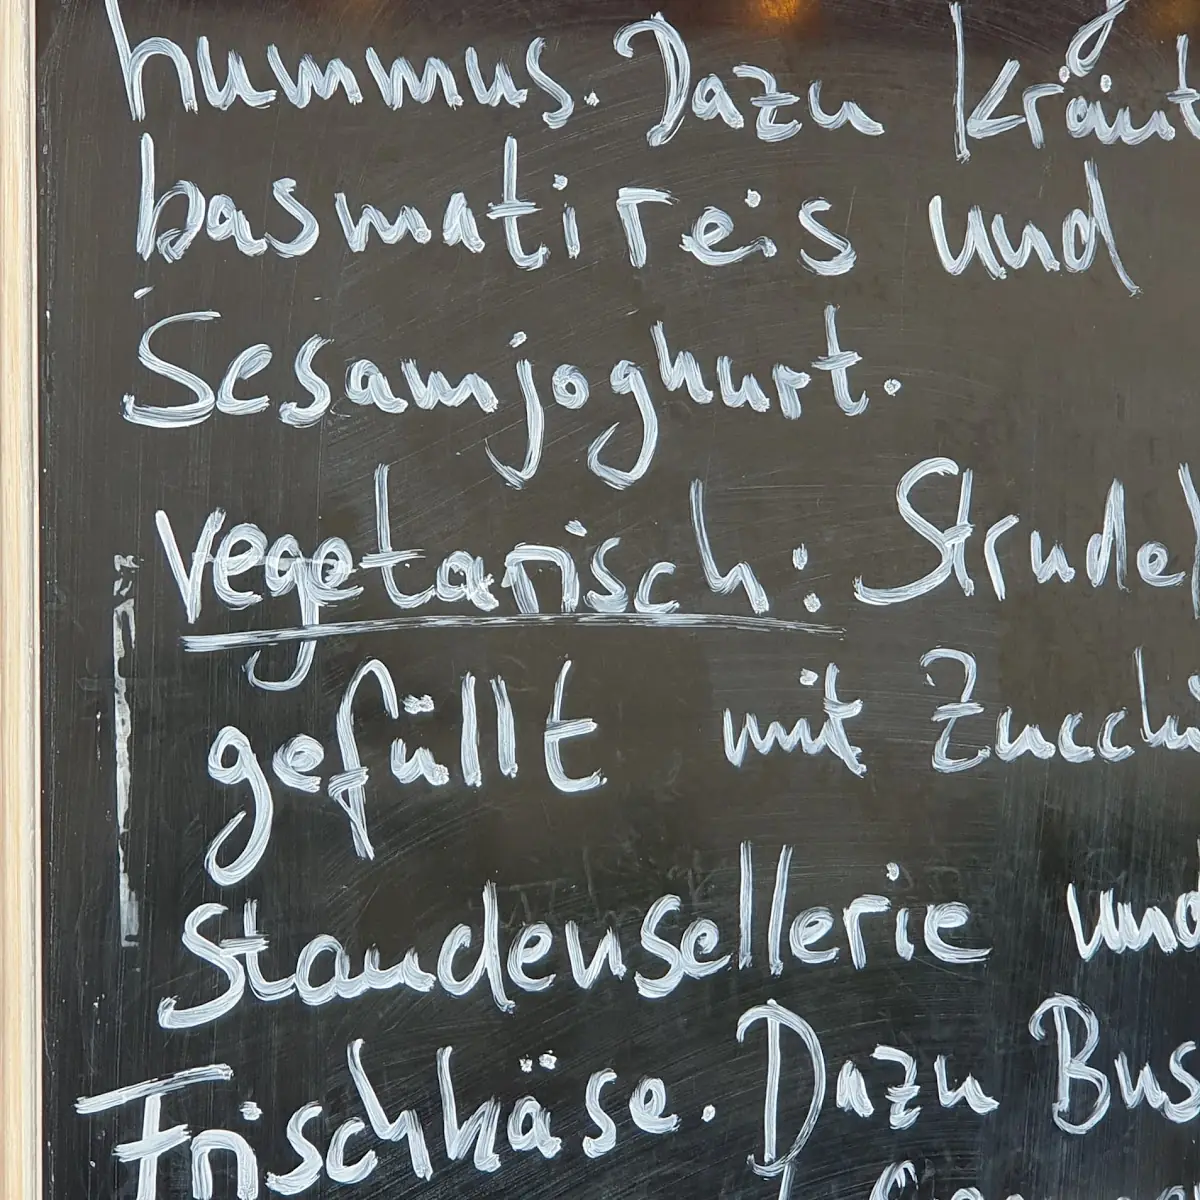 hummus. Dazu Kräut
basmatireis und
Sesamjoghurt.
vegetarisch: Strudel
gefüllt mit Zucchi
Staudensellerie und
Frischkäse. Dazu Bus